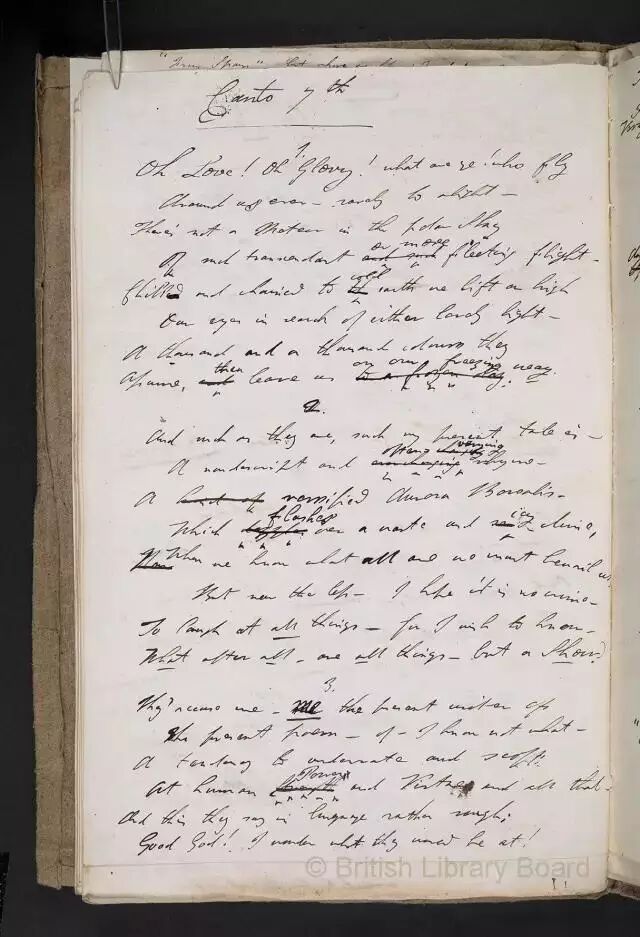 Canto 7th
1.
Oh Love! Oh Glory! what are ye! who fly
Around us ever – rarely to alight –
There's not a Meteor in the polar Sky
Of such transcendant and such or more fleeting flight –
Chill and chained to cold earth we lift on high
Our eyes in search of either lovely light –
A thousand and a thousand colours they
Assume, and then leave us to a frozen day. on our freezing way.
2.
And such as they are, such my present tale is –
A nondescript and ever varying rhyme –
A kind of versified Aurora Borealis –
Which flashes over a waste and icy clime,
When we know what all are we must bewail us,
But ne'er the less – I hope it is no crime –
To laugh at all things – for I wish to know –
What after all – are all things – but a Show?
3.
They accuse me – me the present writer of
The present poem – of – I know not what –
A tendency to underrate and scoff
At human Power and Virtue and all that –
And this they say in language rather rough;
Good God! I wonder what they would be at!
© British Library Board